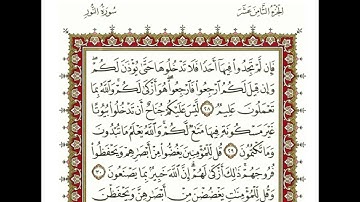 الجزء الثامن عشر
سورة النور
فَإِن لَّمْ تَجِدُوا۟ فِيهَآ أَحَدًا فَلَا تَدْخُلُوهَا حَتَّىٰ يُؤْذَنَ لَكُمْ ۖ
وَإِن قِيلَ لَكُمُ ٱرْجِعُوا۟ فَٱرْجِعُوا۟ ۖ هُوَ أَزْكَىٰ لَكُمْ ۚ وَٱللَّهُ بِمَا
تَعْمَلُونَ عَلِيمٌ ٢٨ لَّيْسَ عَلَيْكُمْ جُنَاحٌ أَن تَدْخُلُوا۟ بُيُوتًا
غَيْرَ مَسْكُونَةٍ فِيهَا مَتَٰعٌ لَّكُمْ ۚ وَٱللَّهُ يَعْلَمُ مَا تُبْدُونَ
وَمَا تَكْتُمُونَ ٢٩ قُل لِّلْمُؤْمِنِينَ يَغُضُّوا۟ مِنْ أَبْصَٰرِهِمْ وَيَحْفَظُوا۟
فُرُوجَهُمْ ۚ ذَٰلِكَ أَزْكَىٰ لَهُمْ ۗ إِنَّ ٱللَّهَ خَبِيرٌۢ بِمَا يَصْنَعُونَ ٣٠
وَقُل لِّلْمُؤْمِنَٰتِ يَغْضُضْنَ مِنْ أَبْصَٰرِهِنَّ وَيَحْفَظْنَ